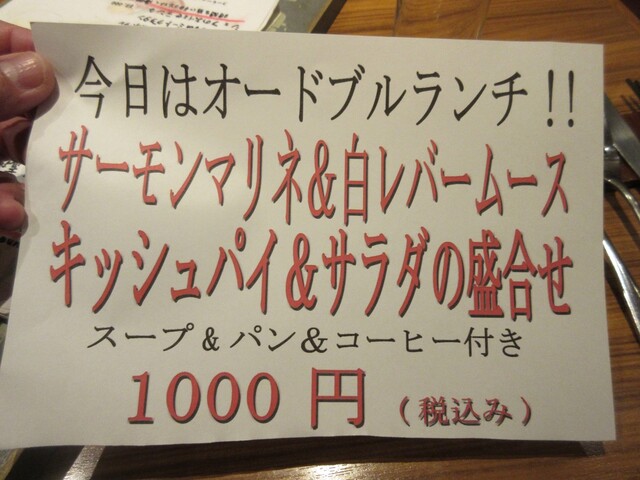 今日はオードブルランチ!!
サーモンマリネ&白レバームース
キッシュパイ&サラダの盛合せ
スープ&パン&コーヒー付き
1000 円 (税込み)